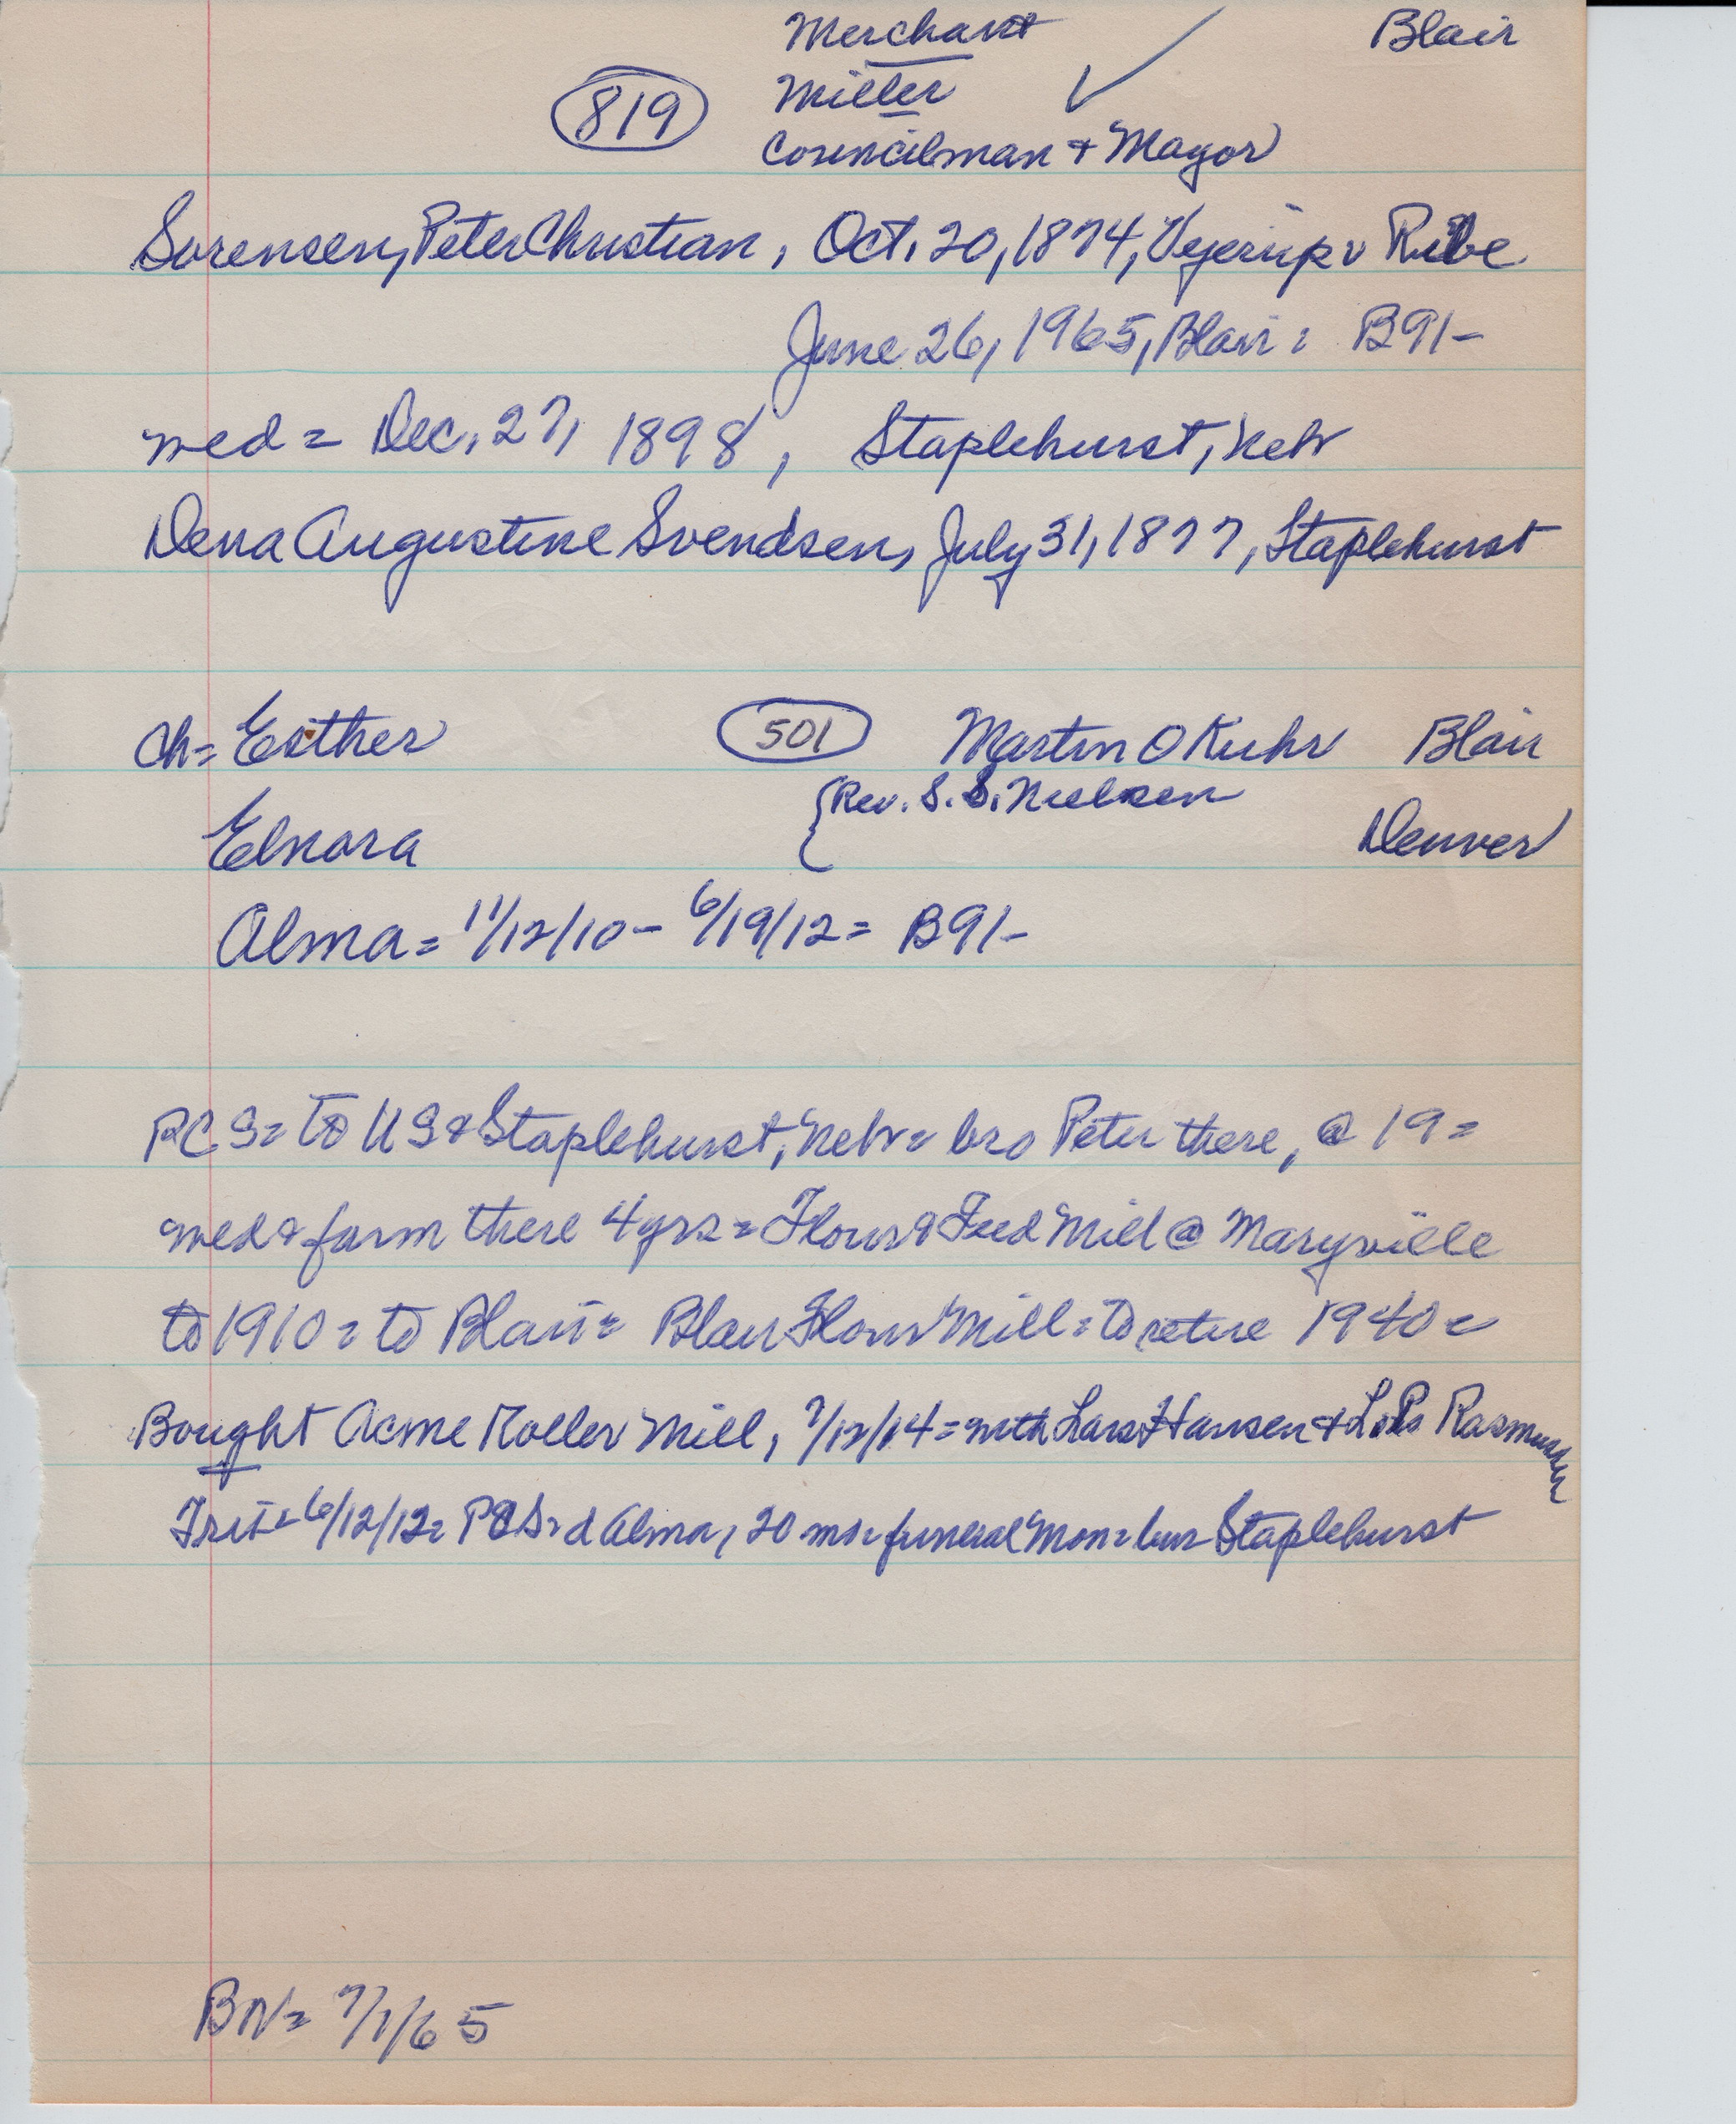 Merchant
Blair
819
Miller
Councilman + Mayor
Sorensen, Peter Christian, Oct. 20, 1874, Vejerup v Ribe
June 26, 1965, Blair = B91-
wed = Dec. 27, 1898, Staplehurst, Neb
Dena Augustine Svendsen, July 31, 1877, Staplehurst
Ch = Esther 501 Martin O Kuhr Blair
{Rev. S. S. Nielsen
Elnora Denver
Alma = 11/12/10 - 6/19/12 = B91-
PCS = to US & Staplehurst, Neb = bro Peter there, @ 19 =
wed & farm there 4 yrs = Flour & Feed Mill @ Maryville
to 1910 = to Blair = Blair Flour Mill = to retire 1940 =
Bought Acme Roller Mill, 7/12/14 = with Lars Hansen + Rasmussen
6/12/12 = PCS = d Alma, 20 mo = funeral Mon = bur Staplehurst
BN = 7/1/65